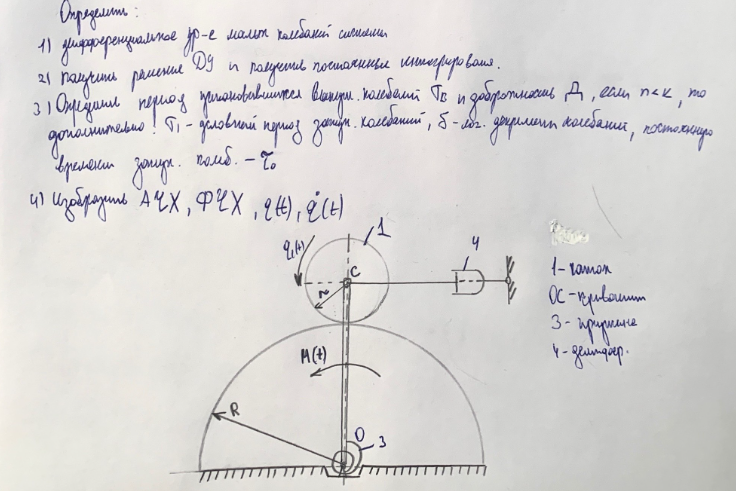 Определить:
1) дифференциальное ур-е малых колебаний системы
2) получить решение ДУ и получить постоянные интегрирования.
3) Определить период установившихся вынужд. колебаний Tв и добротность Д, если n<k, то
дополнительно: T1 - условный период затух. колебаний, δ - лог. декремент колебаний, постоянную
времени затух. - τ0
4) Изобразить АЧХ, ФЧХ, q(t), q̇(t)
1
q1(t)
4
C
r
1 - каток
OC - кривошип
3 - пружина
4 - демпфер.
M(t)
R
O
3